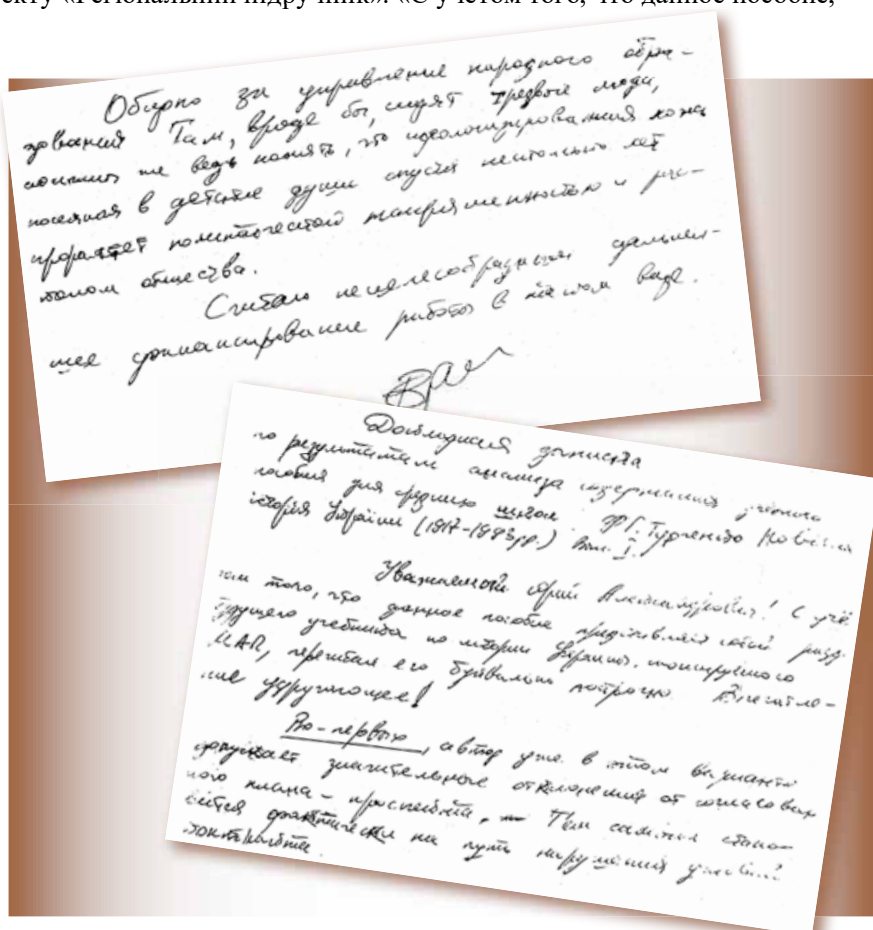 екту «Регіональний підручник». «С учетом того, что данное пособие,
Обидно за управление народного обра-
зования Там, вроде бы, сидят трезвые люди,
должны же ведь понять, что идеологизированная
посеянная в детские души спустя несколько лет
прорастет политической и рас-
колом общества.
Считаю нецелесообразным дальней-
шее финансирование работы в таком виде.
Докладная записка
по результатам анализа содержания учебного
пособия для средних школ Ф.Г. Турченко Новітня
історія України (1917-1993рр.) Вып. I.
Уважаемый Юрий Александрович! С учё
том того, что данное пособие представляет собой разд.
будущего учебника по истории Украины,
перечитал его буквально построчно Впечатле-
ние удручающее!
Во-первых, автор уже в этом варианте
допускает значительные отклонения от согласован
ного плана-проспекта, Тем самым стано-
вится фактически на путь нарушения условий
контракта.